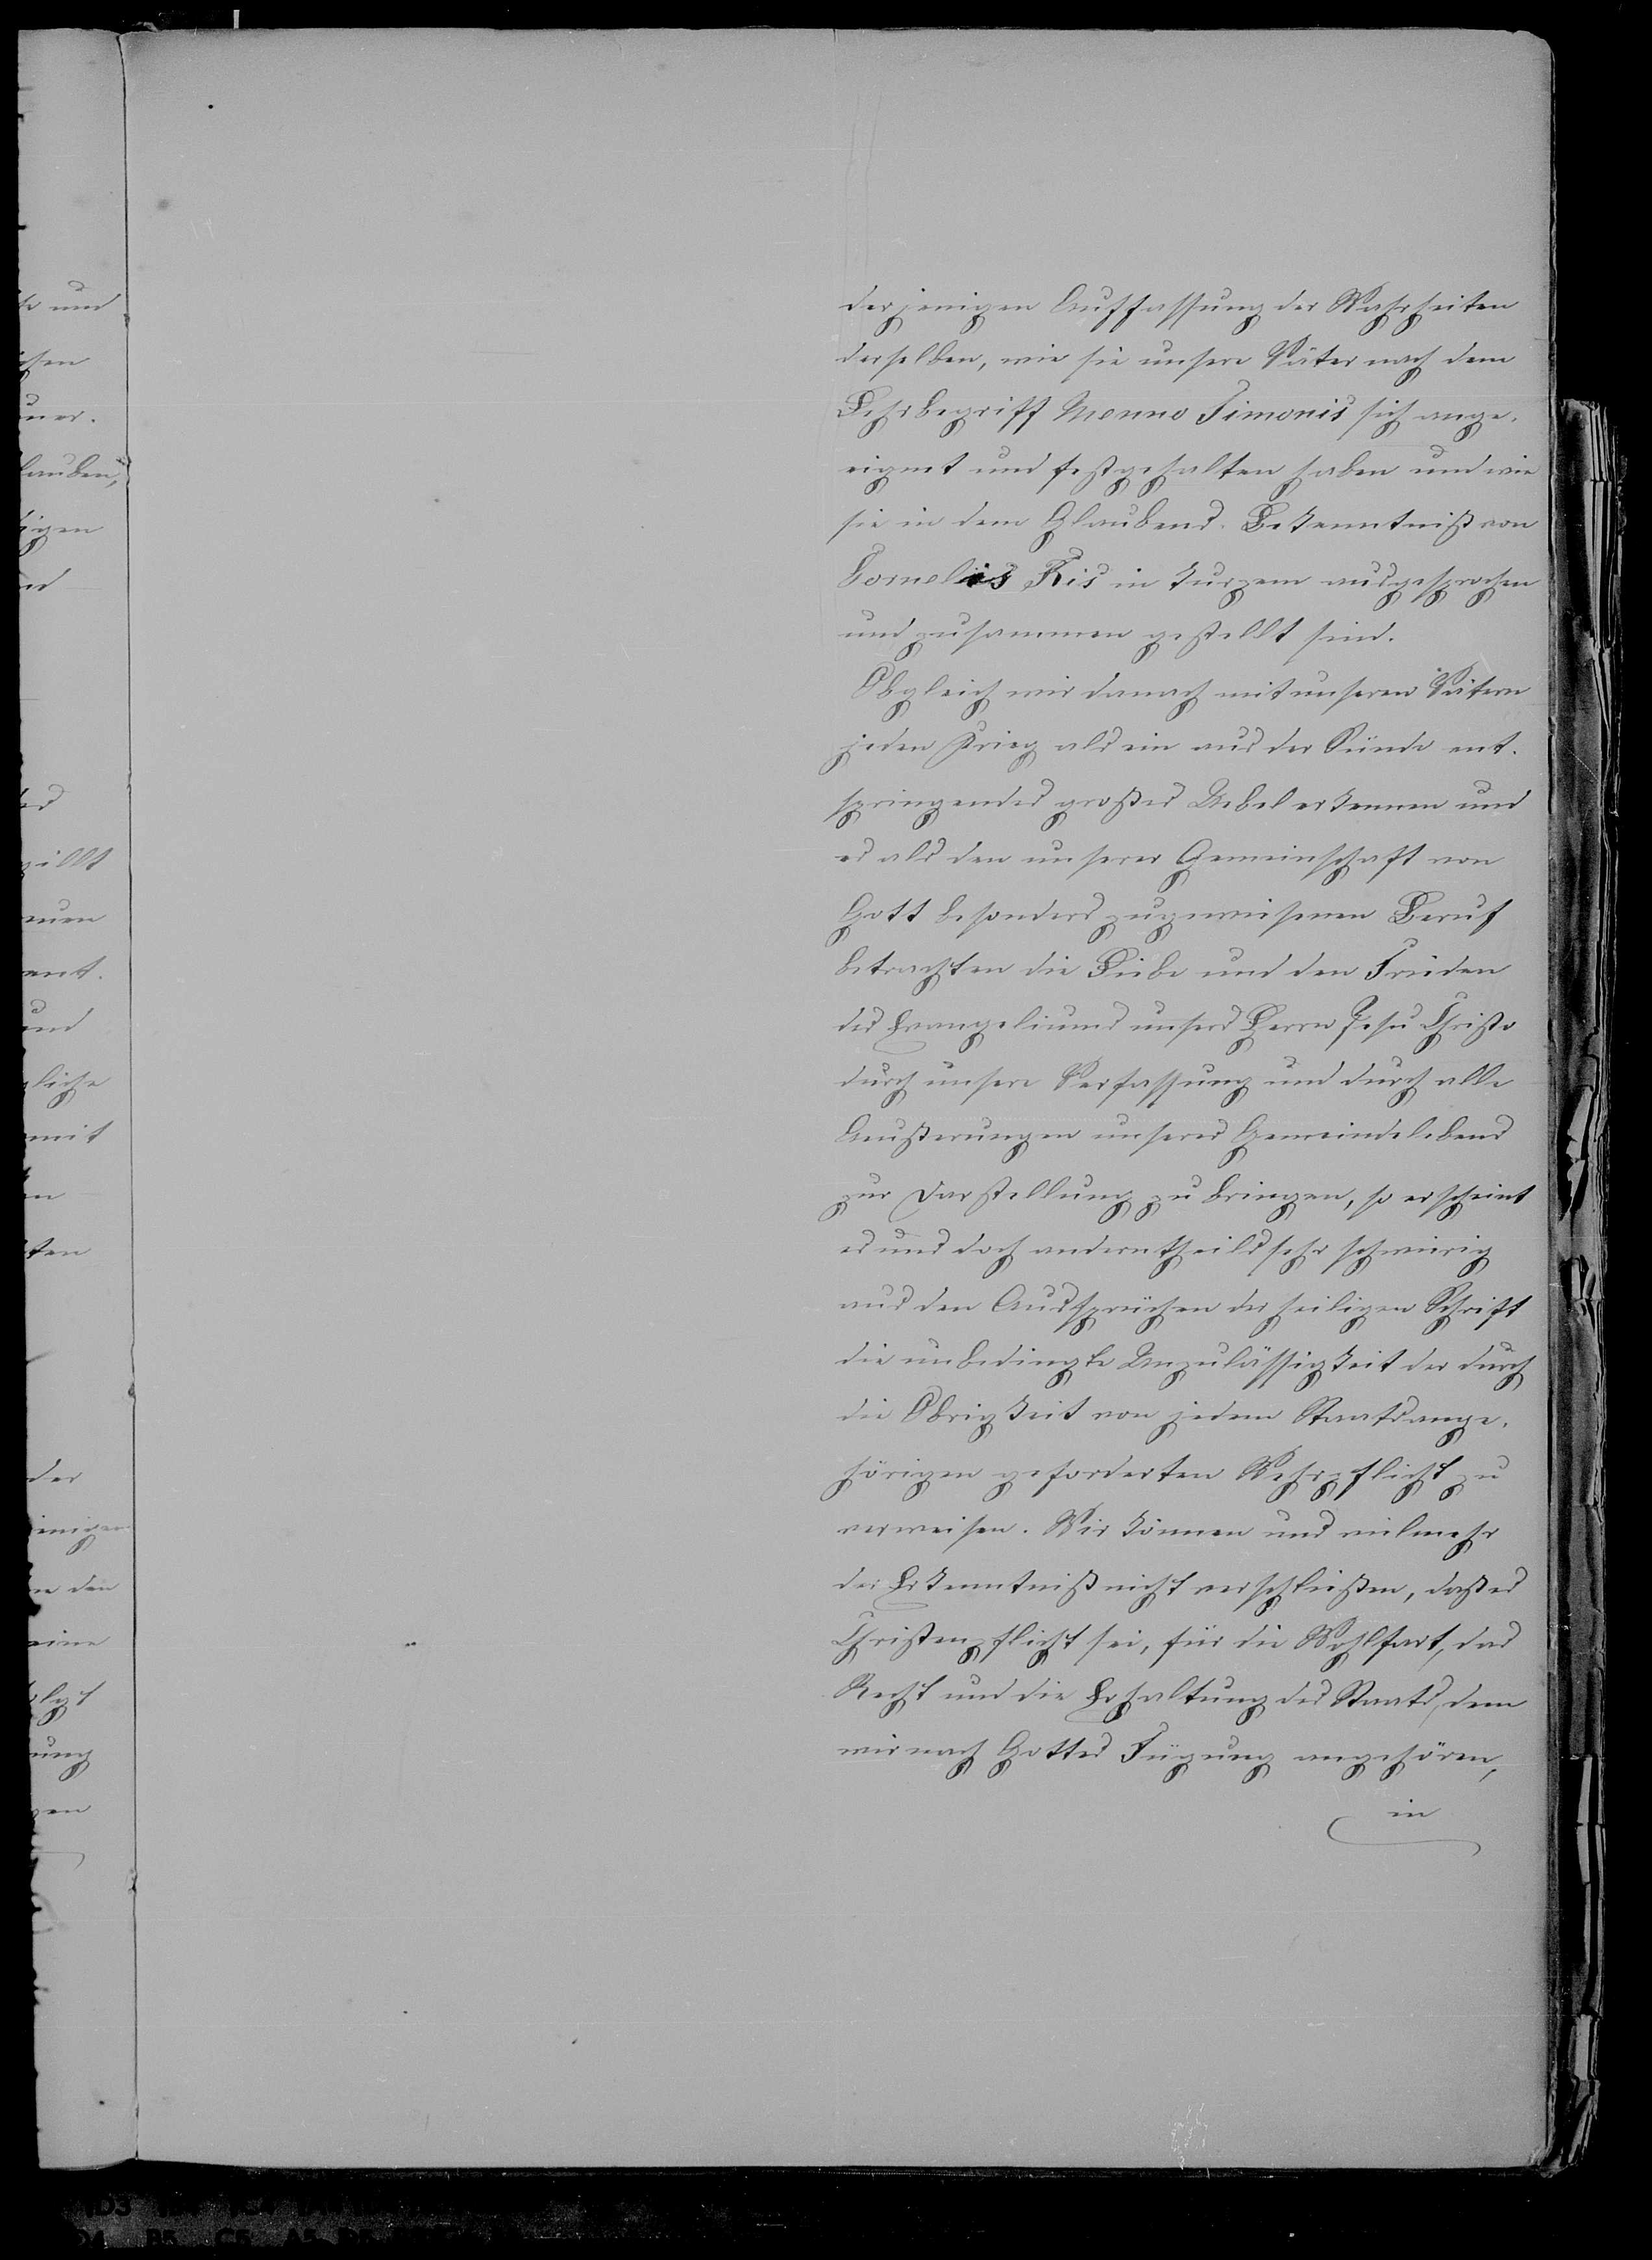 derjenigen Auffassung der Wahrheiten
derselben, wie sie unsere Väter nach dem
Lehrbegriff Menno Simonis sich ange-
eignet und festgehalten haben und wie
sie in dem Glaubens-Bekenntniß von
Cornelis Ris in kurzem ausgesprochen
und zusammen gestellt sind.
Obgleich wir danach mit unseren Vätern
jeden Krieg als ein aus der Sünde ent-
springendes großes Uebel erkennen und
es als den unserer Gemeinschaft von
Gott besonders zugewiesenen Beruf
betrachten die Liebe und den Frieden
des Evangeliums unsers Herrn Jesu Christo
durch unsere Verfassung und durch alle
Aeußerungen unseres Gemeindelebens
zur Darstellung zu bringen, so erscheint
es uns doch anderntheils sehr schwierig
aus den Aussprüchen der heiligen Schrift
die unbedingte Unzulässigkeit der durch
die Obrigkeit von jedem Staatsange-
hörigen geforderten Wehrpflicht zu
verweisen. Wir können uns vielmehr
der Erkenntniß nicht verschließen, daß es
Christenpflicht sei, für die Wohlfart, das
Recht und die Erhaltung des Staats, dem
wir nach Gottes Fügung angehören,
in